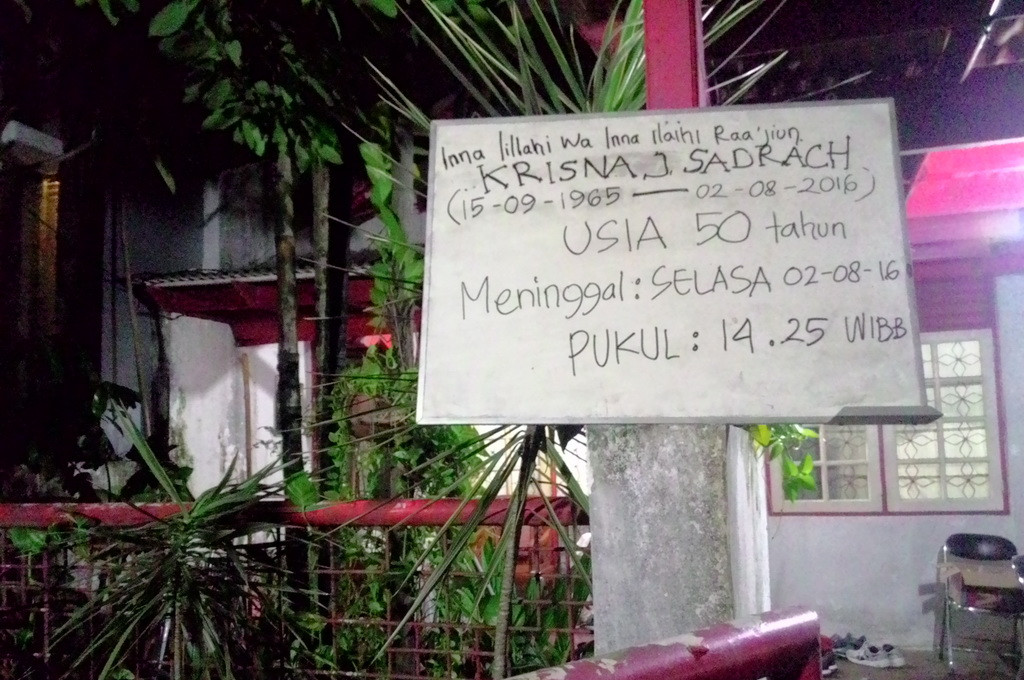 Inna lillahi wa Inna Ilaihi Raa'jiun.
KRISNA J. SADRACH
(15-09-1965 — 02-08-2016)
USIA 50 tahun
Meninggal: SELASA 02-08-16
PUKUL: 14.25 WIBB